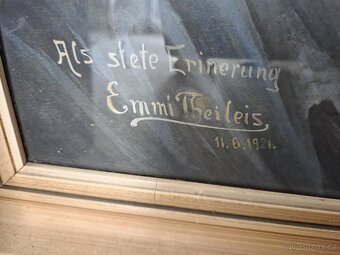 Als stete Erinerung
Emmi Theileis
11.6.1921.